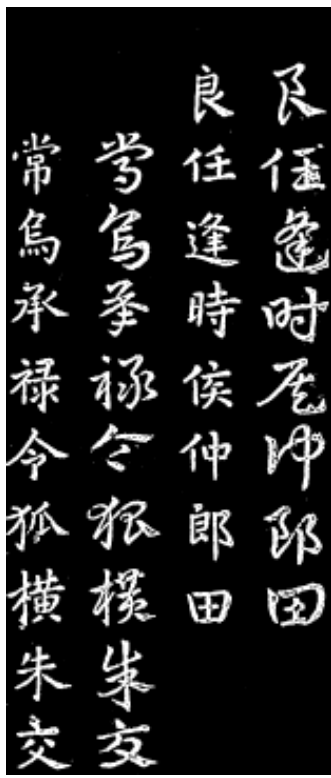 良任逢时侯仲郎田
良任逢時侯仲郎田
常烏承禄令狐横朱交
常烏承禄令狐横朱交